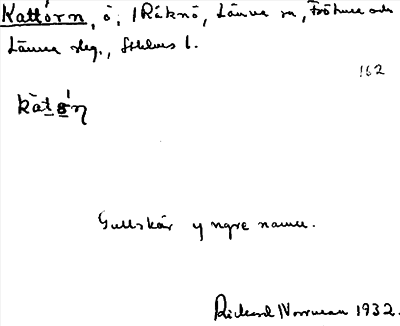 Kattörn, ö, i Räknö, Länna sn, Frötuna och
Länna skg., Sthlms l.
162
Gullskär yngre namn.
Rickard Norrman 1932.